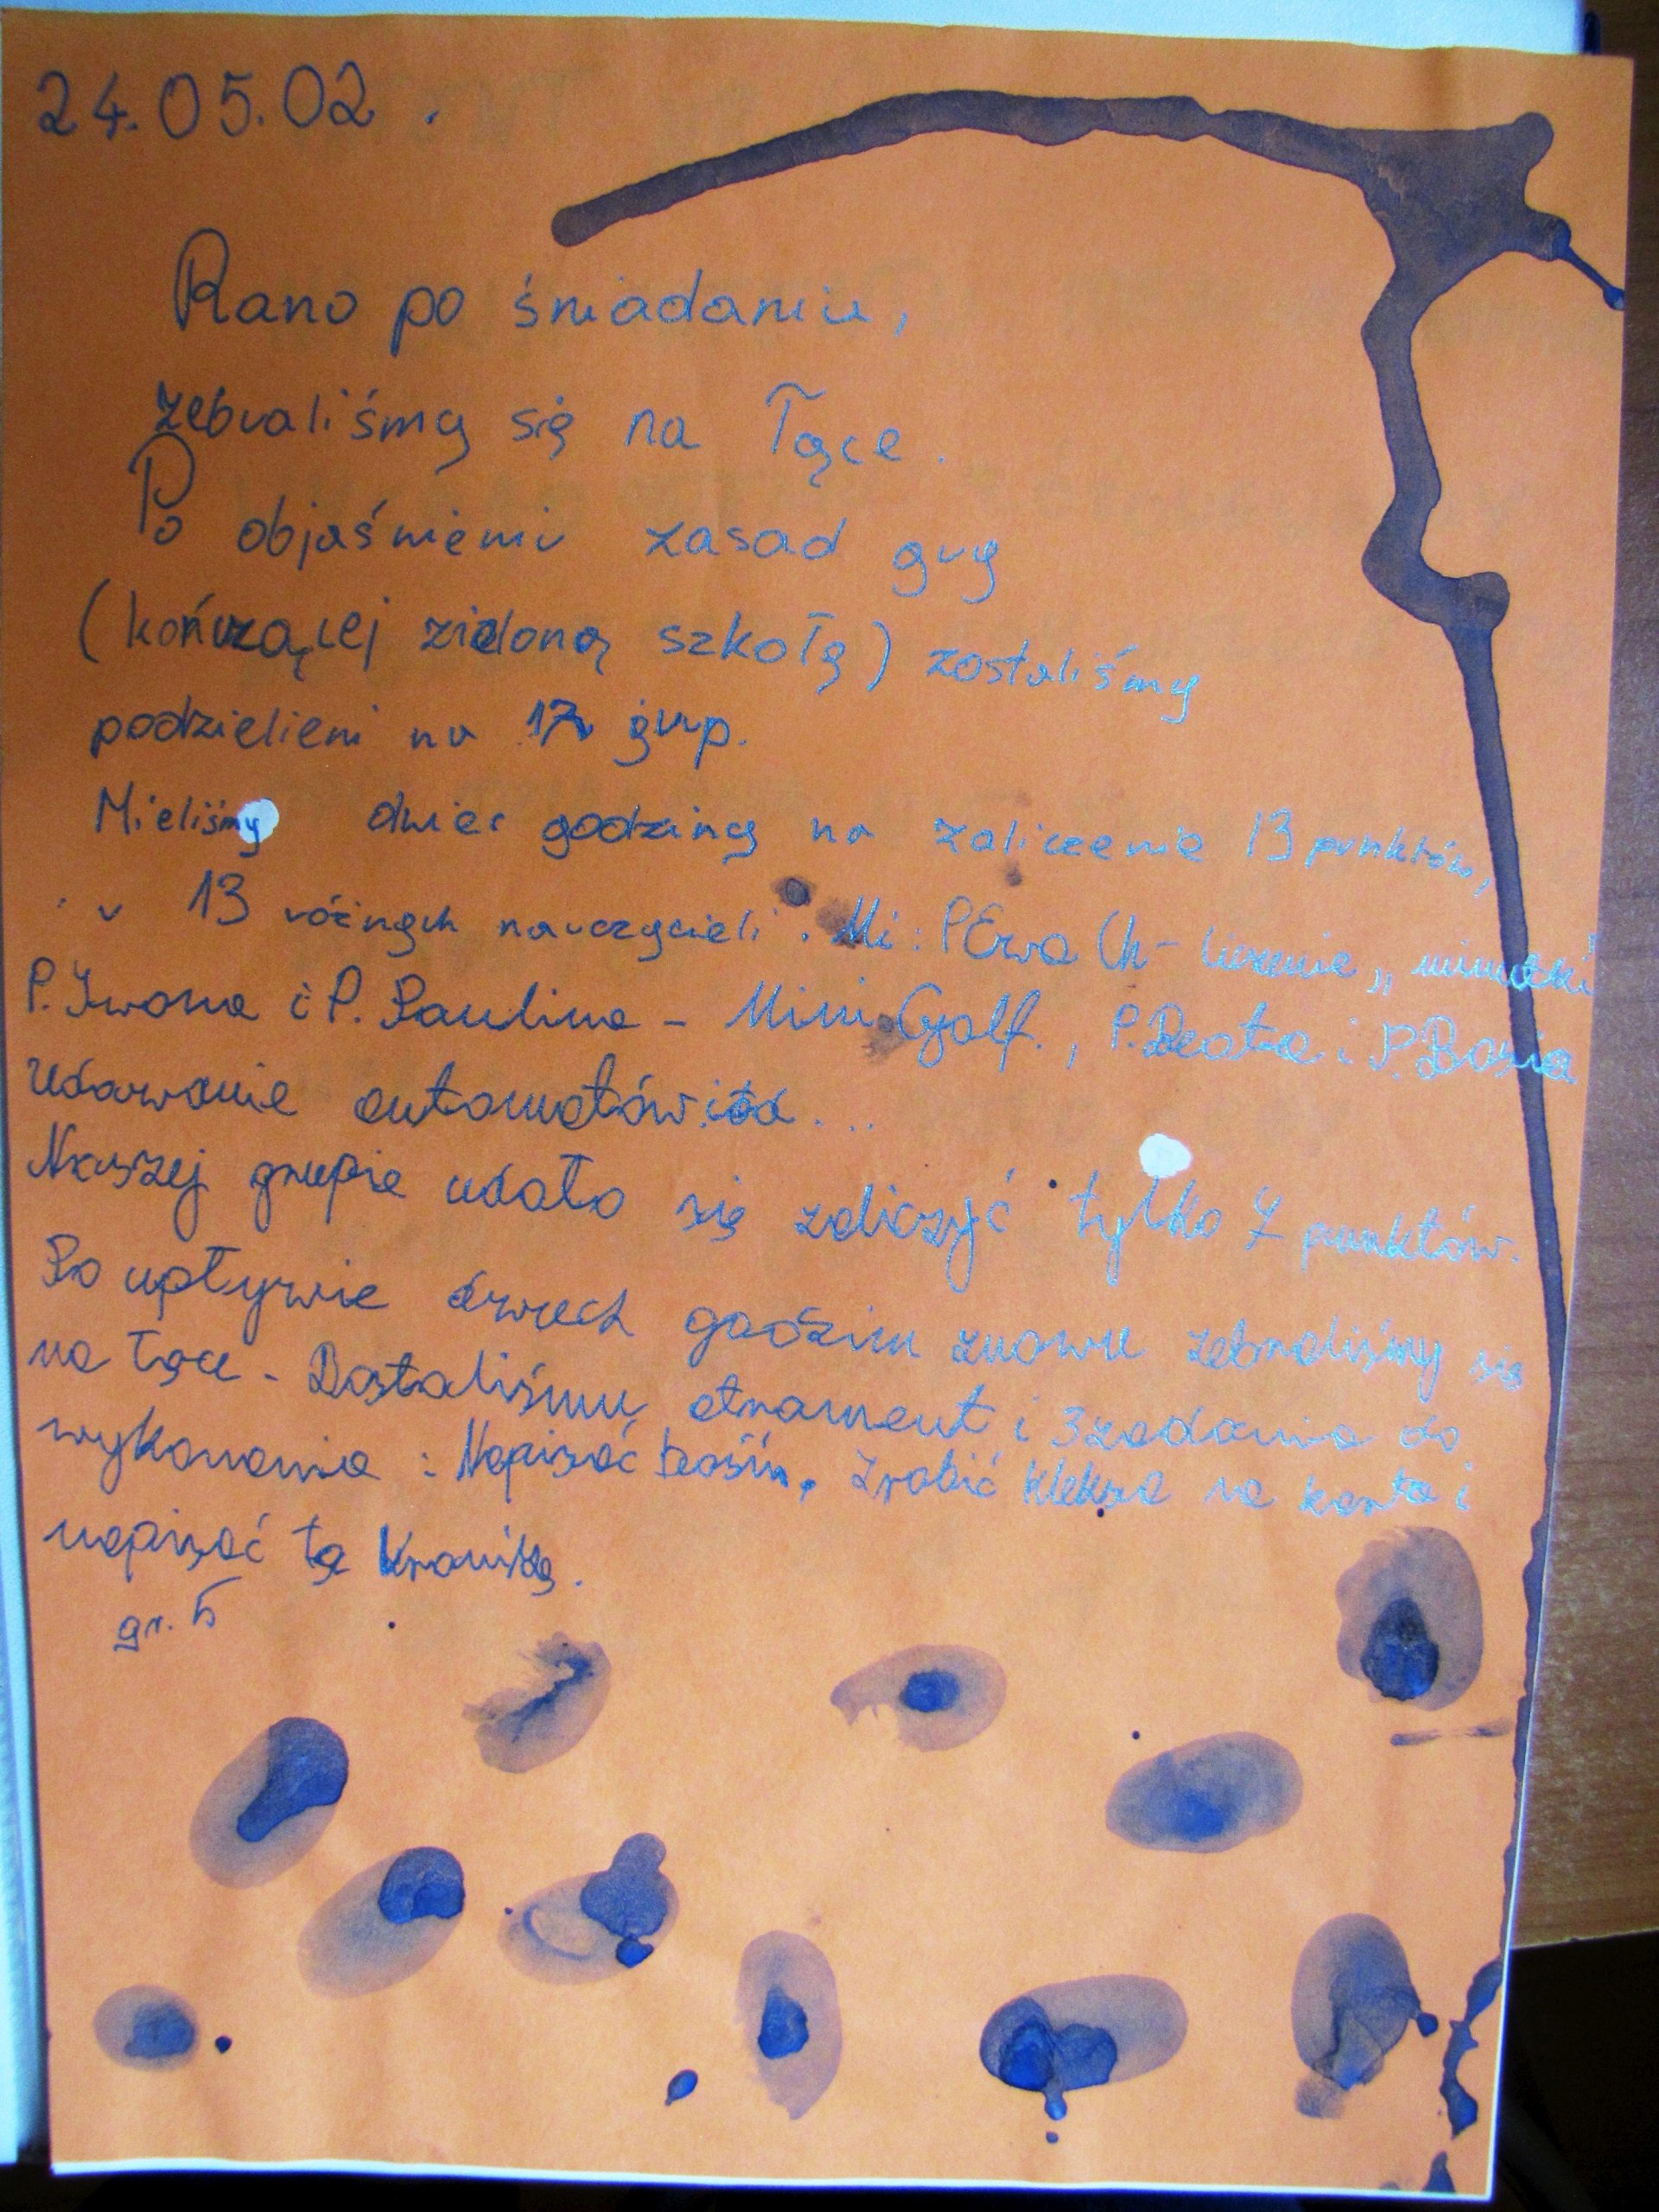 24.05.02.
Rano po śniadaniu,
zebraliśmy się na Łące.
Po objaśnieniu zasad gry
(kończącej zieloną szkołę) zostaliśmy
podzieleni na grup.
Mieliśmy dwie godziny na zaliczenie 13 punktów,
u 13 różnych nauczycieli. Mi: P.Ewa Ch- liczenie,
P. Iwona i P. Paulina - Mini Golf., P.Beata i P.Basia
Udawanie automatów itd...
Naszej grupie udało się zaliczyć tylko 7 punktów.
Po upływie dwuch godzin znowu zebraliśmy się
na Łące. Dostaliśmy atrament i 3 zadania do
wykonania: Napisać baśń, Zrobić kleksa na karta i
napisać tę kronikę.
gr. 5